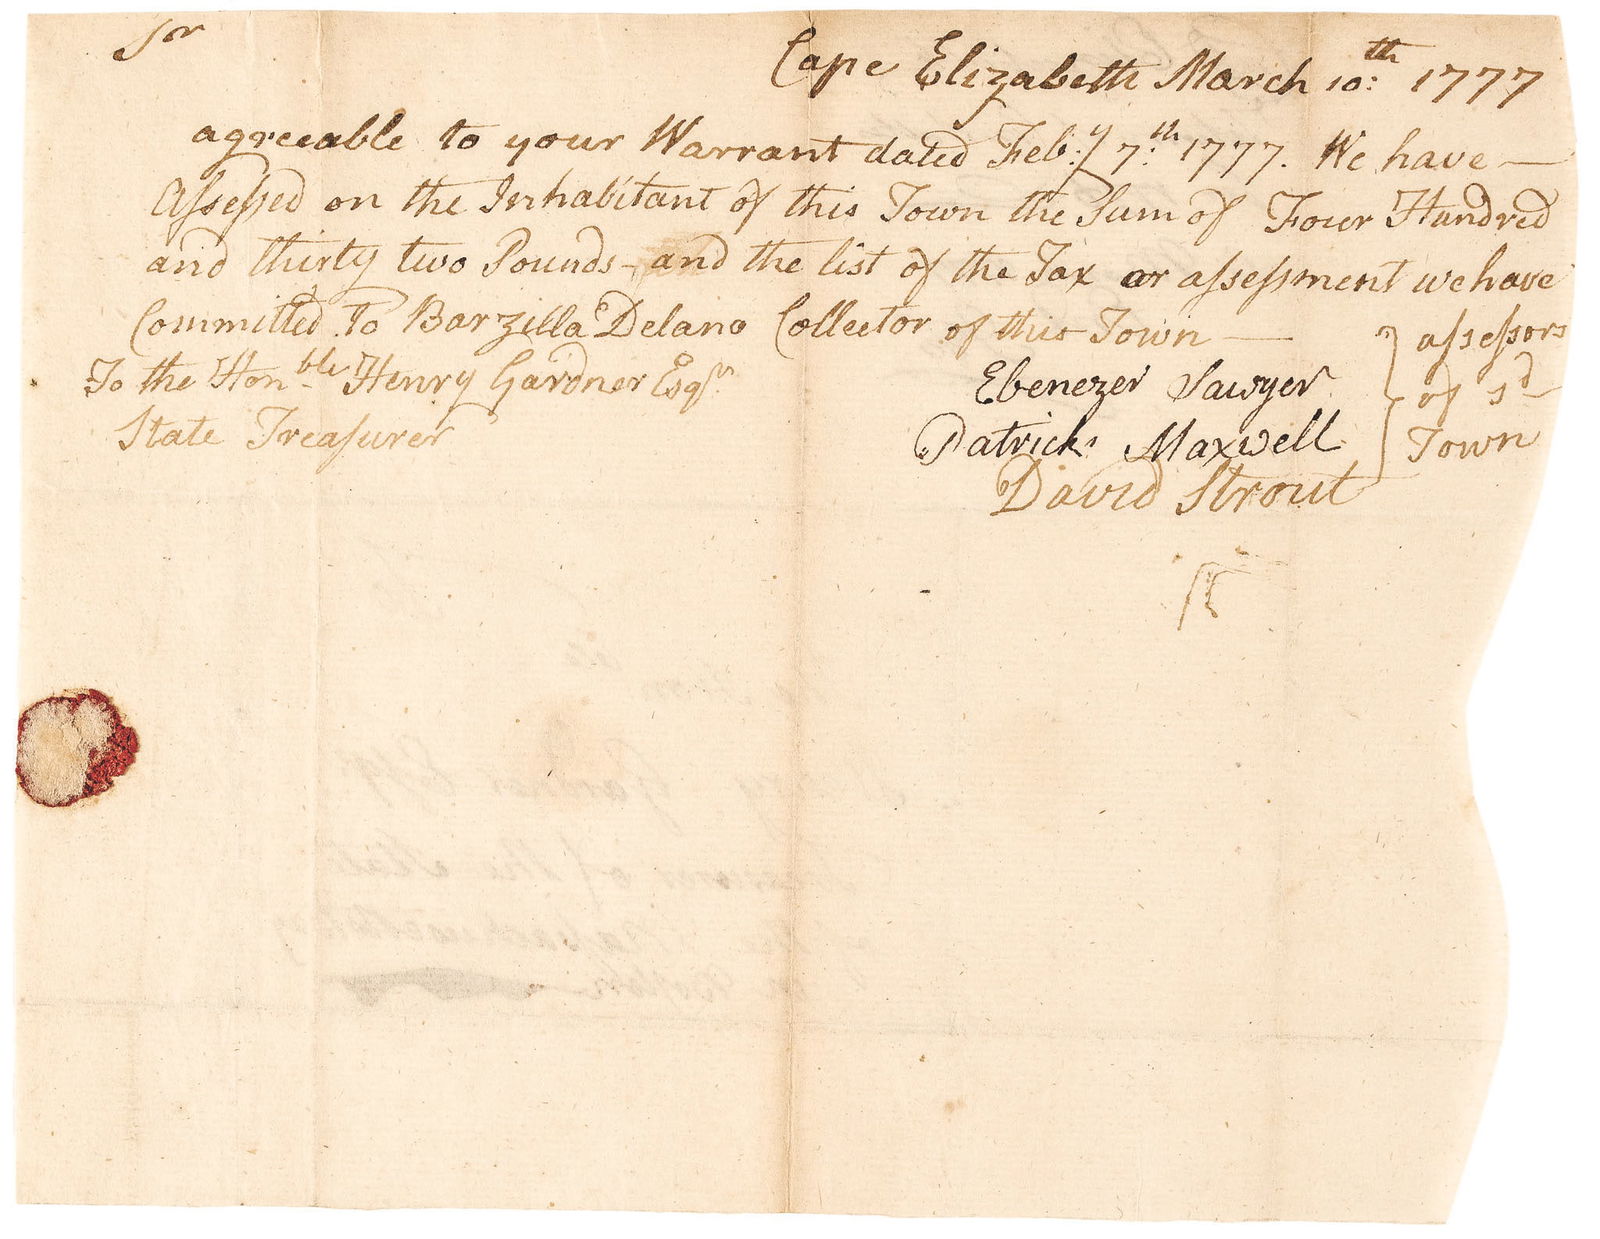 Sr
Cape Elizabeth March 10:th 1777
agreeable to your Warrant dated Feb:y 7:th 1777. We have —
Assessed on the Inhabitant of this Town the Sum of Four Hundred
and thirty two Pounds - and the list of the Tax or assessment we have
Committed To Barzilla Delano Collector of this Town —
To the Honble Henry Gardner Esqr
State Treasurer
Ebenezer Sawyer
Patrick Maxwell
David Strout
assessors
of sd
Town